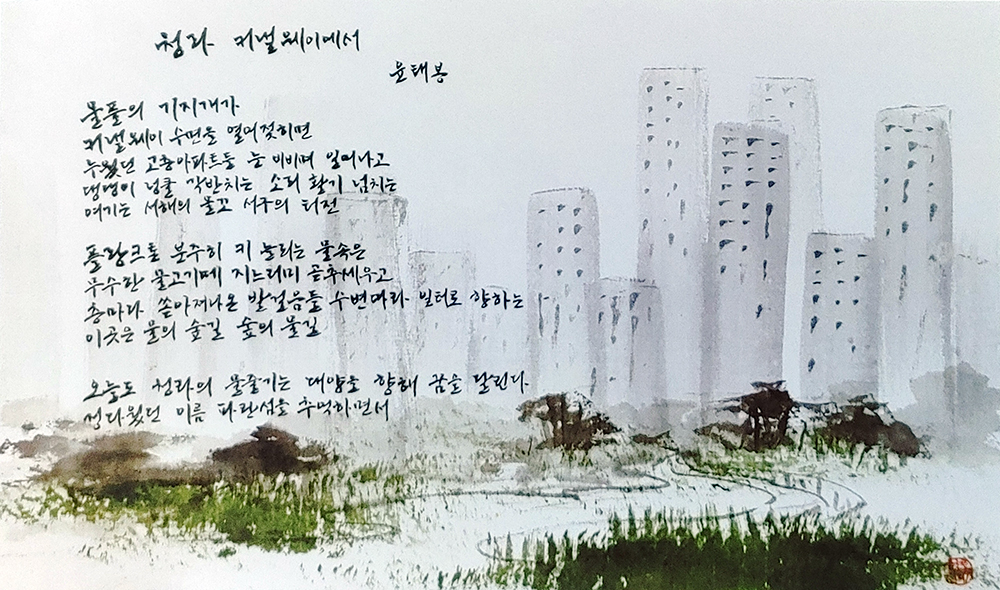 청라 커널웨이에서
윤태봉
물풀의 기지개가
커널웨이 수면을 열어젖히면
누웠던 고층아파트들 눈 비비며 일어나고
댕댕이 넝쿨 각반치는 소리 활기 넘치는
여기는 서해의 물꼬 서구의 터전
플랑크톤 분주히 키 늘리는 물속은
무수한 물고기떼 지느러미 곧추세우고
층마다 쏟아져나온 발걸음들 수변따라 일터로 향하는
이곳은 물의 숲길 숲의 물길
오늘도 청라의 물줄기는 대양을 향해 꿈을 달린다
정다웠던 이름 파란섬을 추억하면서